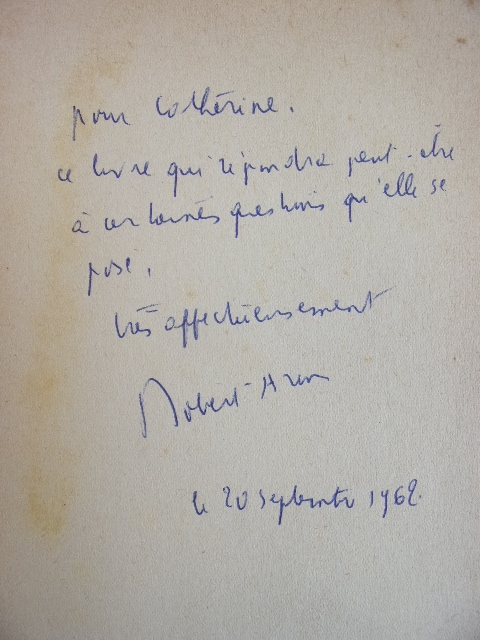 pour Cathérine.
ce livre qui répondra peut-être
à certaines questions qu'elle se
pose,
très affectueusement
Robert Aron
le 20 septembre 1962.